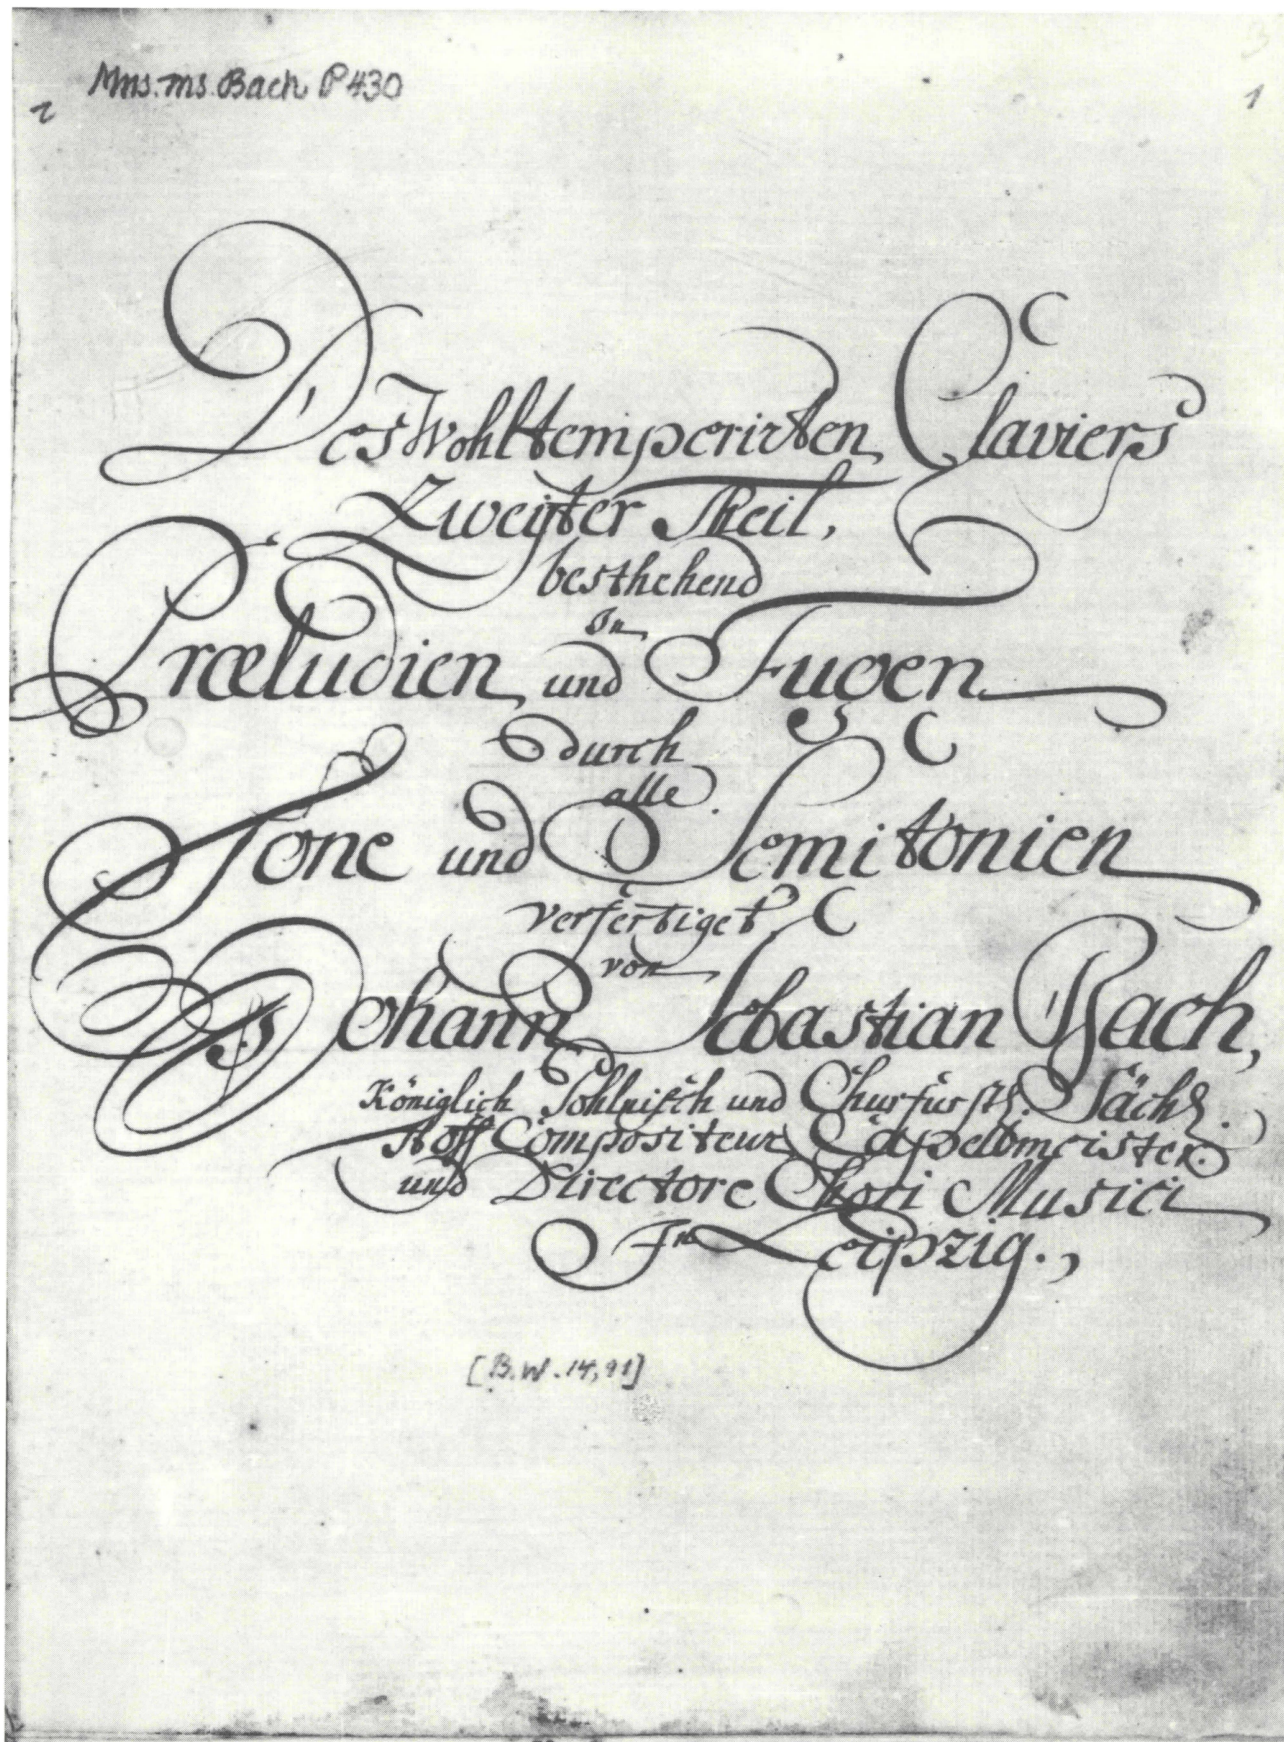 Mus. ms. Bach P 430
1
Des Wohltemperirten Claviers
Zweyter Theil,
besthehend
In
Præludien und Fugen
durch
alle
Tone und Semitonien
verfertiget
von
Johann Sebastian Bach,
Königlich Pohlnisch und Churfürstl. Sächs.
Hoff Compositeur Capellmeister
und Directore Chori Musici
In Leipzig.
[B. W. 14, 91]